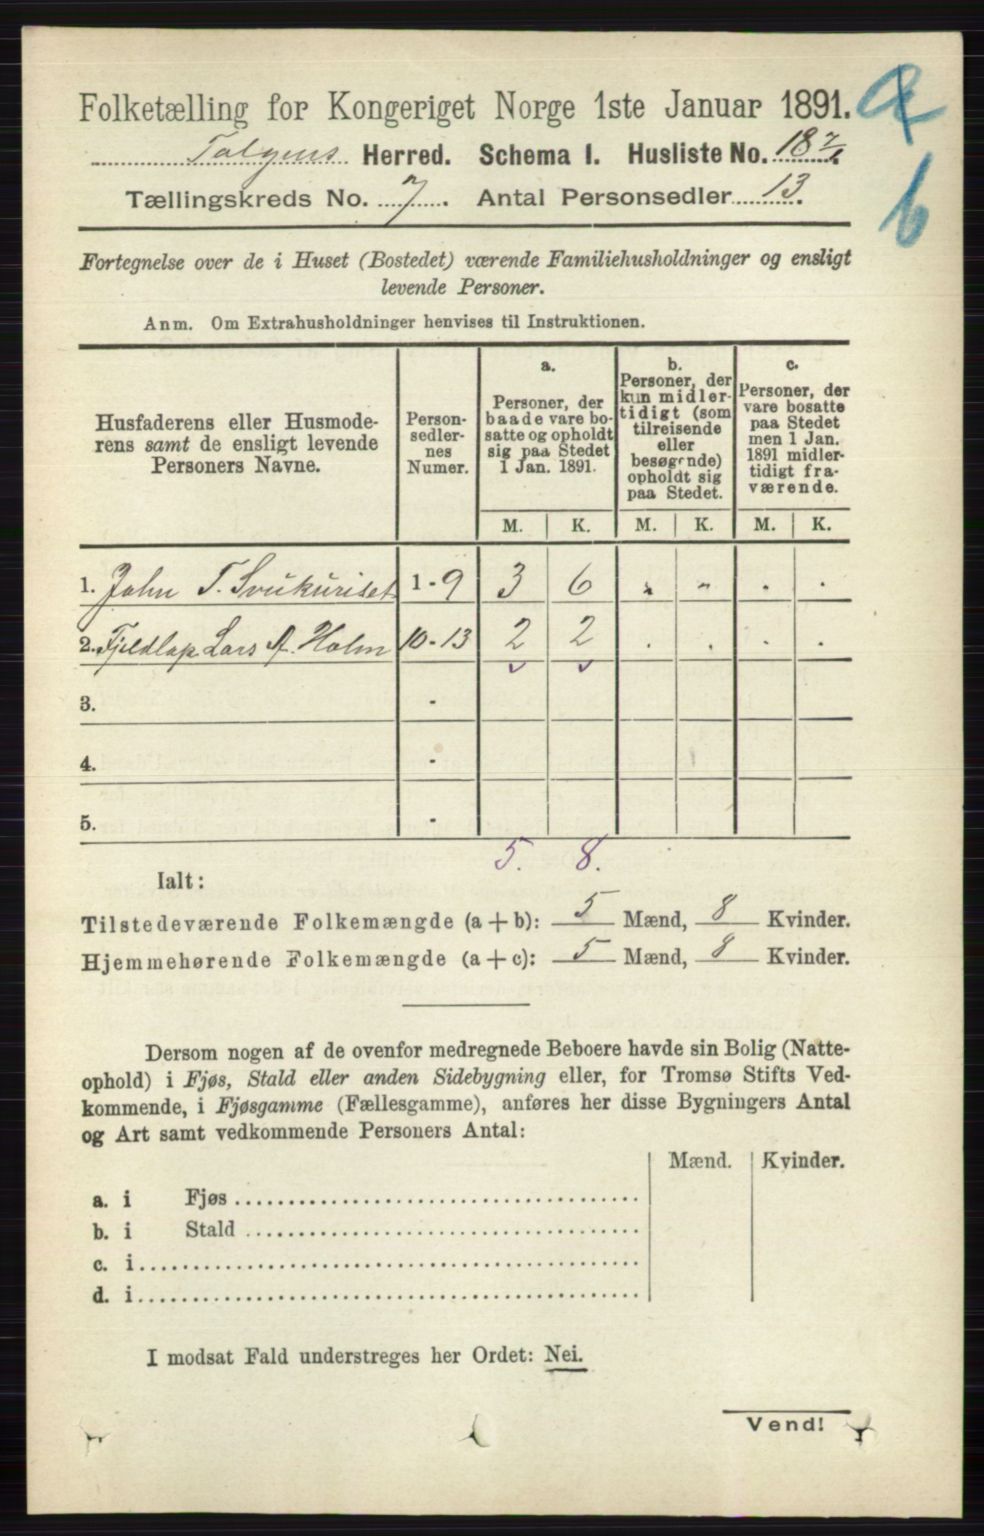 Folketælling for Kongeriget Norge 1ste Januar 1891.
Tolgens Herred. Schema I. Husliste No. 18
Tællingskreds No. 7. Antal Personsedler 13.
b
Fortegnelse over de i Huset (Bostedet) værende Familiehusholdninger og ensligt
levende Personer.
Anm. Om Extrahusholdninger henvises til Instruktionen.
Husfaderens eller Husmode-
rens samt de ensligt levende
Personers Navne.
Person-
sedler-
nes
Numer.
a.
Personer, der
baade vare bo-
satte og opholdt
sig paa Stedet
1 Jan. 1891.
b.
Personer, der
kun midler-
tidigt (som
tilreisende
eller
besøgende)
opholdt sig
paa Stedet.
c.
Personer, der
vare bosatte
paa Stedet
men 1 Jan.
1891 midler-
tidigt fra-
værende.
M. K. M. K. M. K.
1. John T. Svukuriset 1-9 3 6 „ „ . .
2. Fjeldlap Lars A. Holm 10-13 2 2 . . . .
3. -
4. -
5. -
5. 8.
Ialt:
Tilstedeværende Folkemængde (a+b): 5 Mænd, 8 Kvinder.
Hjemmehørende Folkemængde (a+c): 5 Mænd, 8 Kvinder.
Dersom nogen af de ovenfor medregnede Beboere havde sin Bolig (Natte-
ophold) i Fjøs, Stald eller anden Sidebygning eller, for Tromsø Stifts Ved-
kommende, i Fjøsgamme (Fællesgamme), anføres her disse Bygningers Antal
og Art samt vedkommende Personers Antal:
Mænd. Kvinder.
a. i Fjøs
b. i Stald
c. i
d. i
I modsat Fald understreges her Ordet: Nei.
Vend!